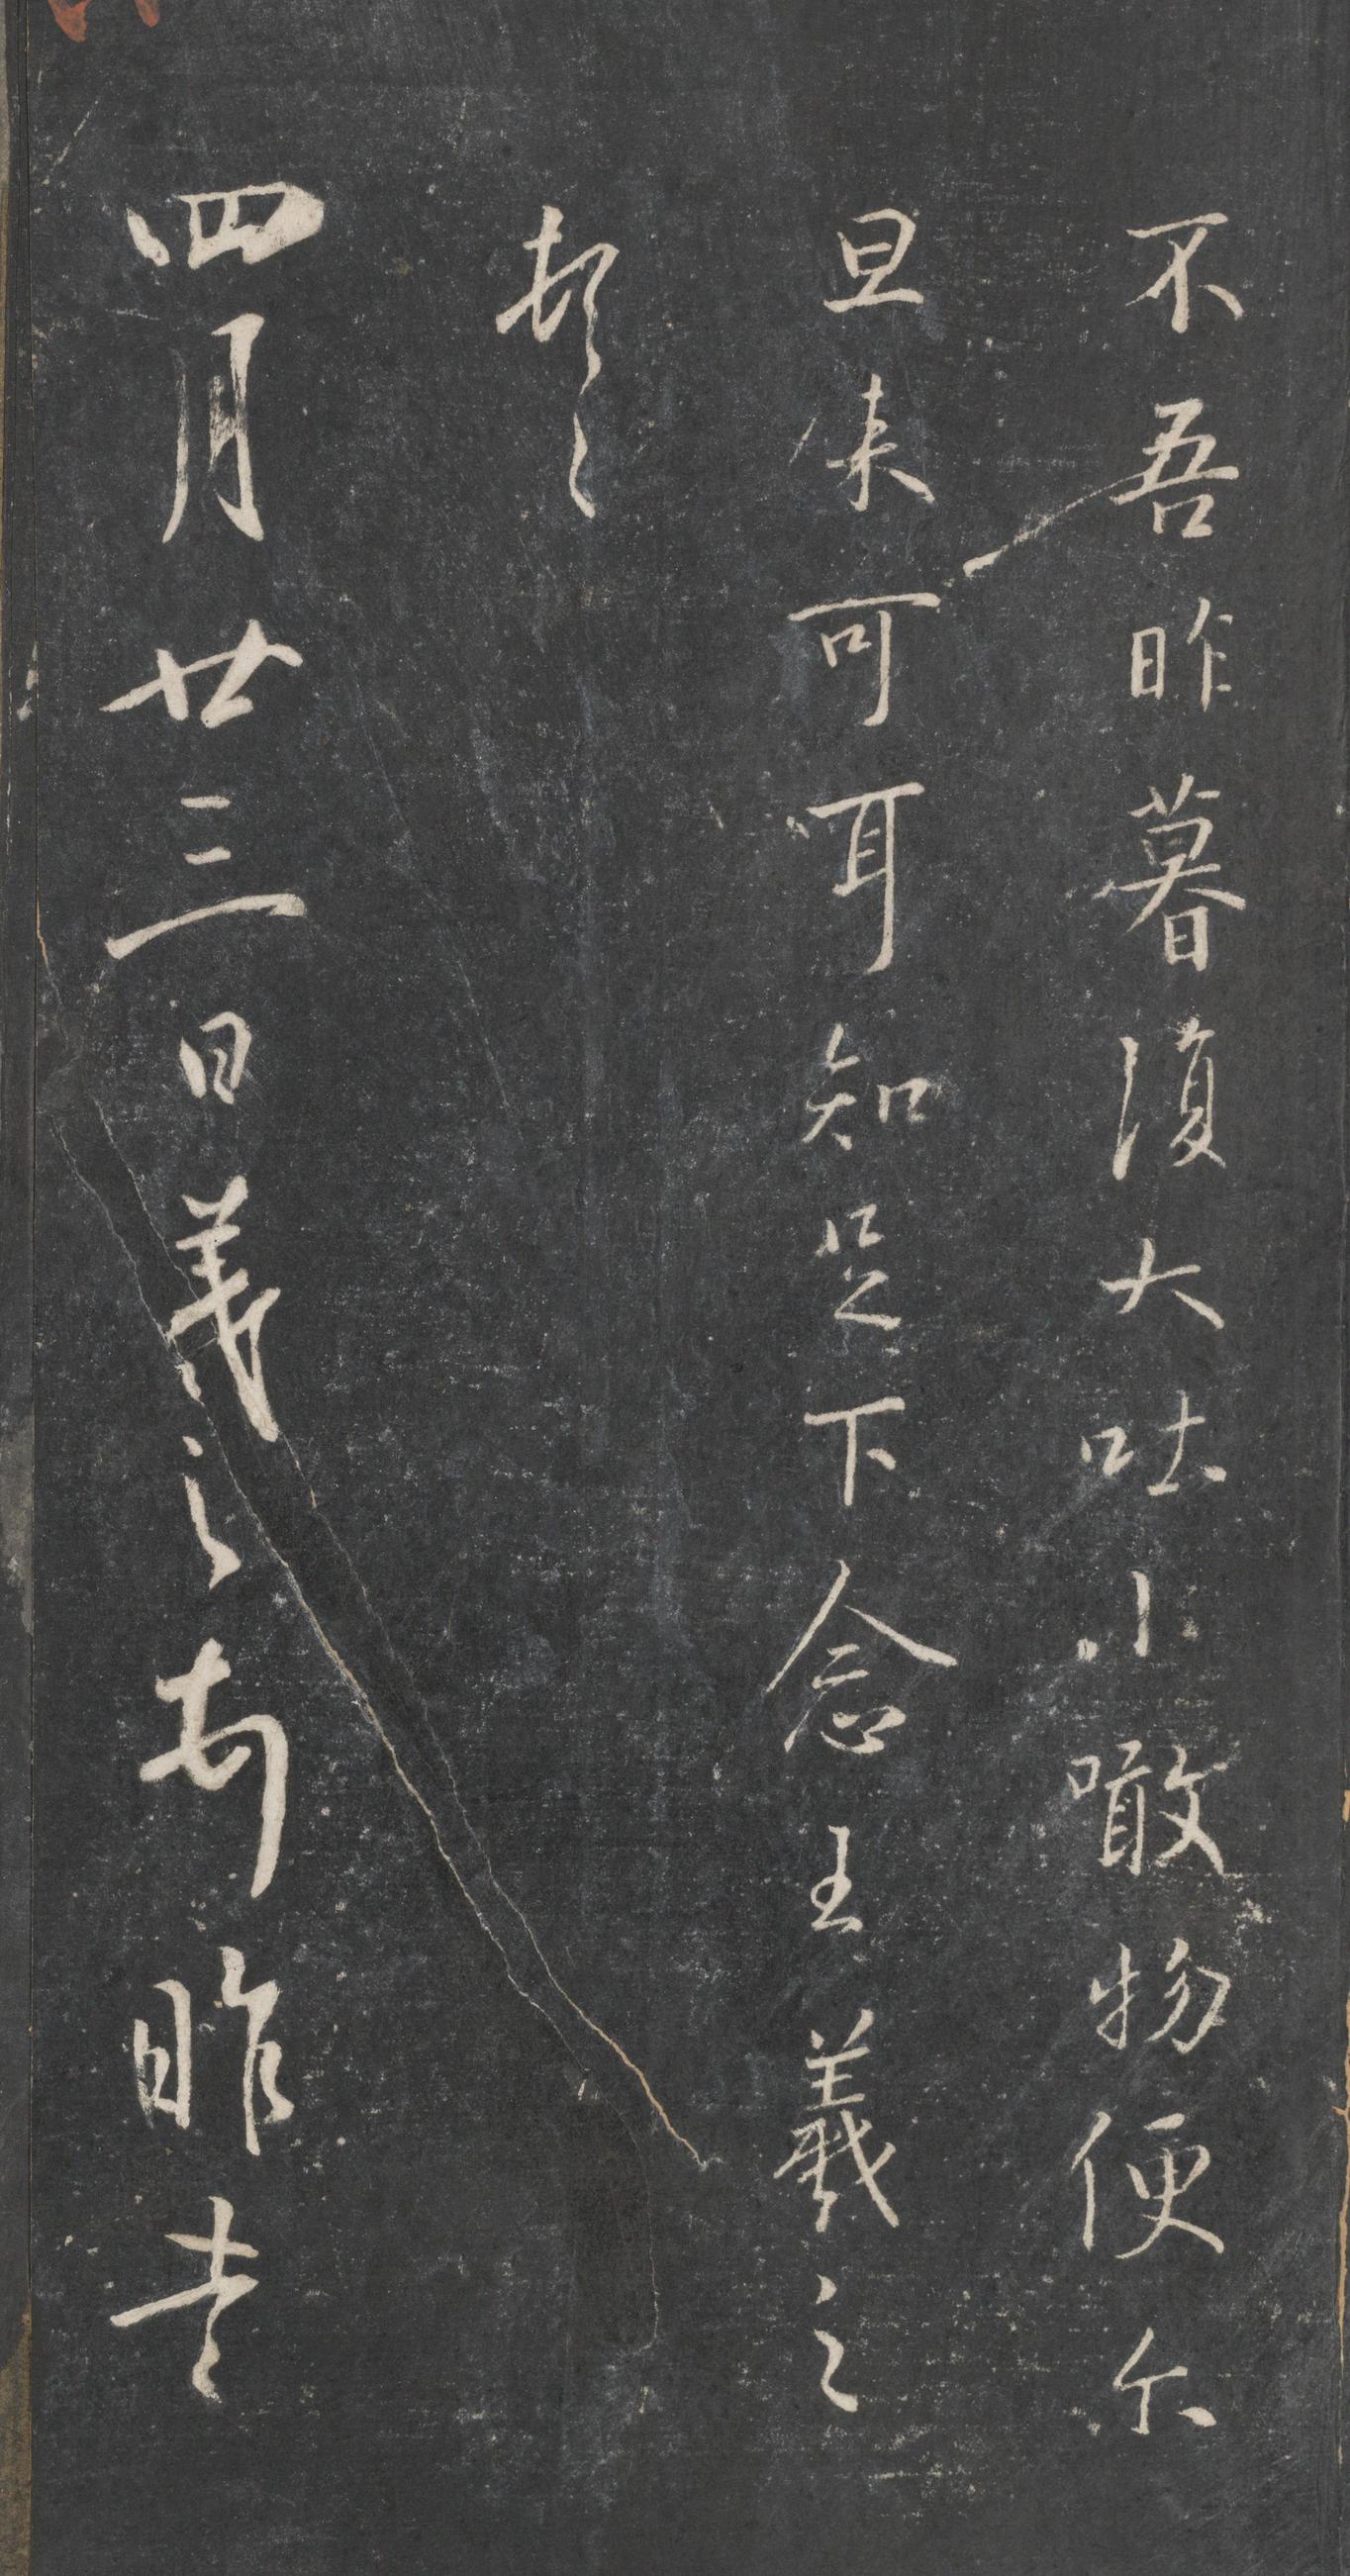 不吾昨暮復大吐小噉物便尔
旦来可可耳知足下念王羲之
頓〻
四月廿三日羲之頓昨書